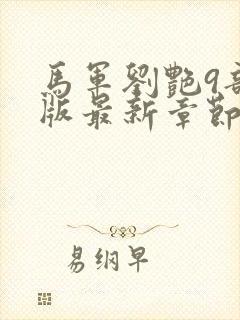 馬軍劉艷9部
版最新章節
易纲早